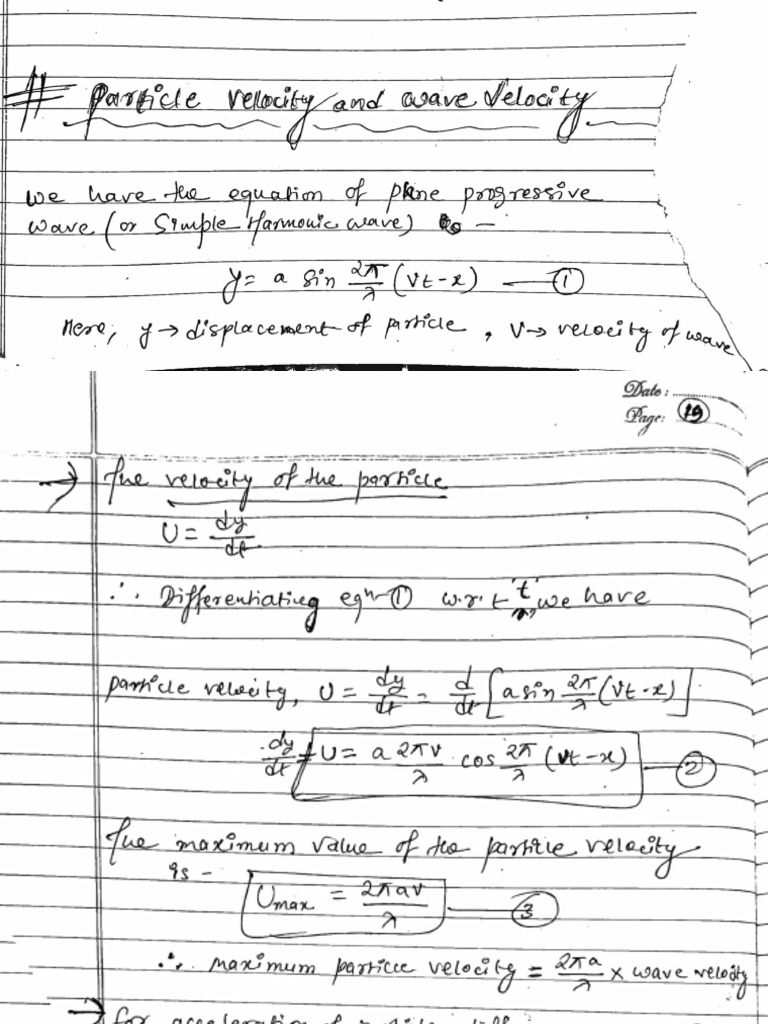 # Particle velocity and wave velocity
we have the equation of plane progressive
wave (or Simple Harmonic wave) is –
y = a sin 2π/λ (vt-x) — ①
Here, y → displacement of particle, v → velocity of wave
Date:
Page: 19
→ The velocity of the particle
U = dy/dt
∴ Differentiating eqn ① w.r.t 't' we have
particle velocity, U = dy/dt = d/dt [a sin 2π/λ (vt-x)]
dy/dt = U = a 2πv/λ cos 2π/λ (vt-x) — ②
The maximum value of the particle velocity
is –
Umax = 2πav/λ — ③
∴ maximum particle velocity = 2πa/λ × wave velocity
→ for acceleration of